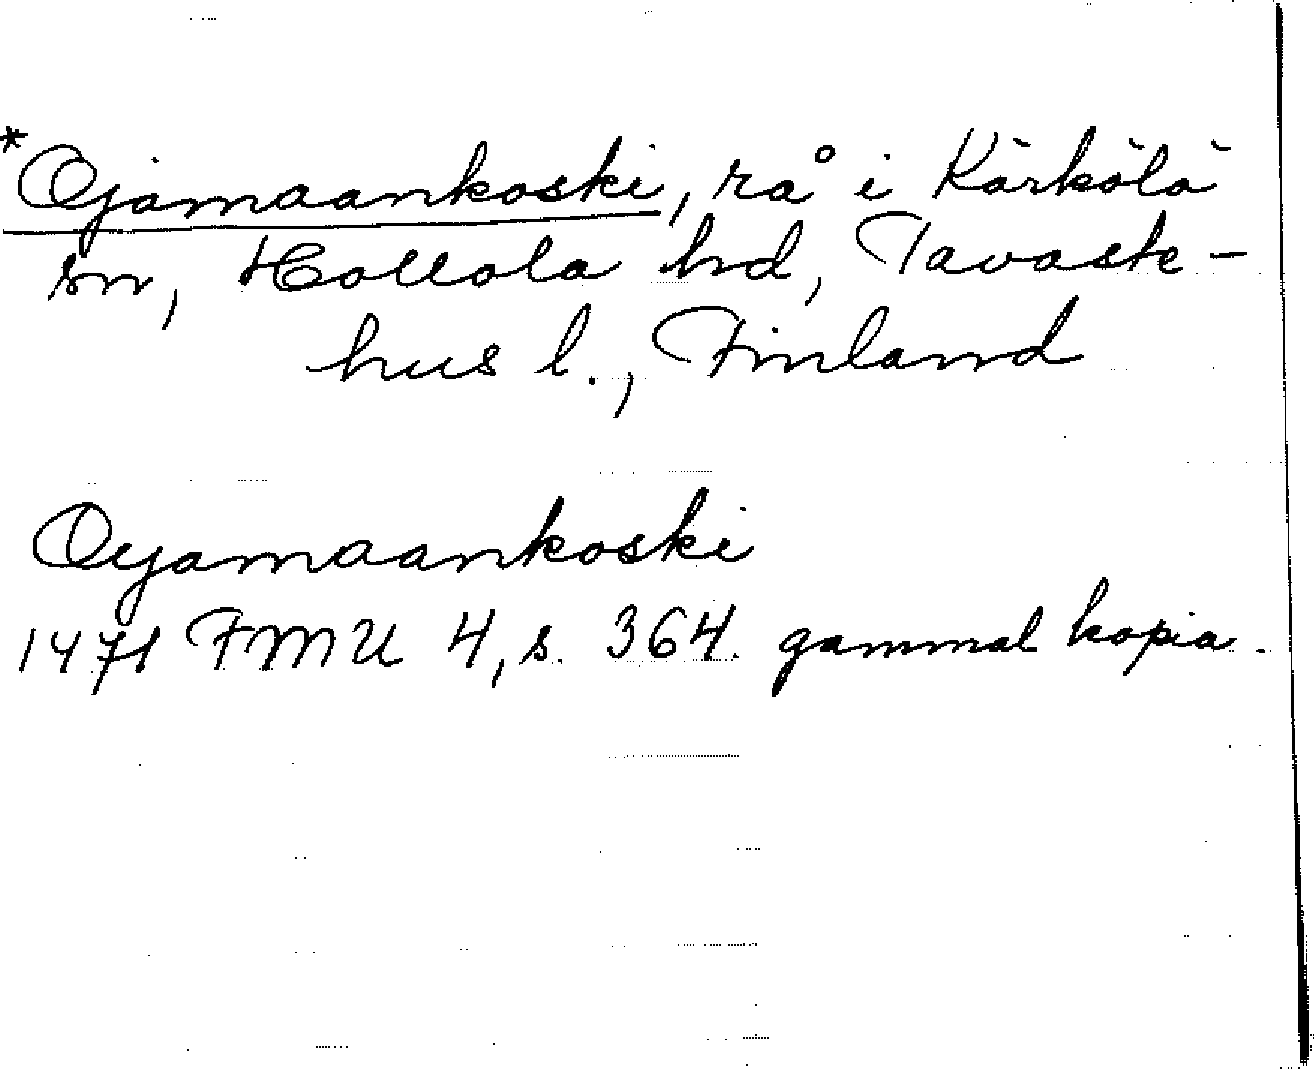 *Ojamaankoski, rå i Kärkölä
sn, Hollola hd, Tavaste-
hus l., Finland
Oyamaankoski
1471 FMU 4, s. 364. gammal kopia.